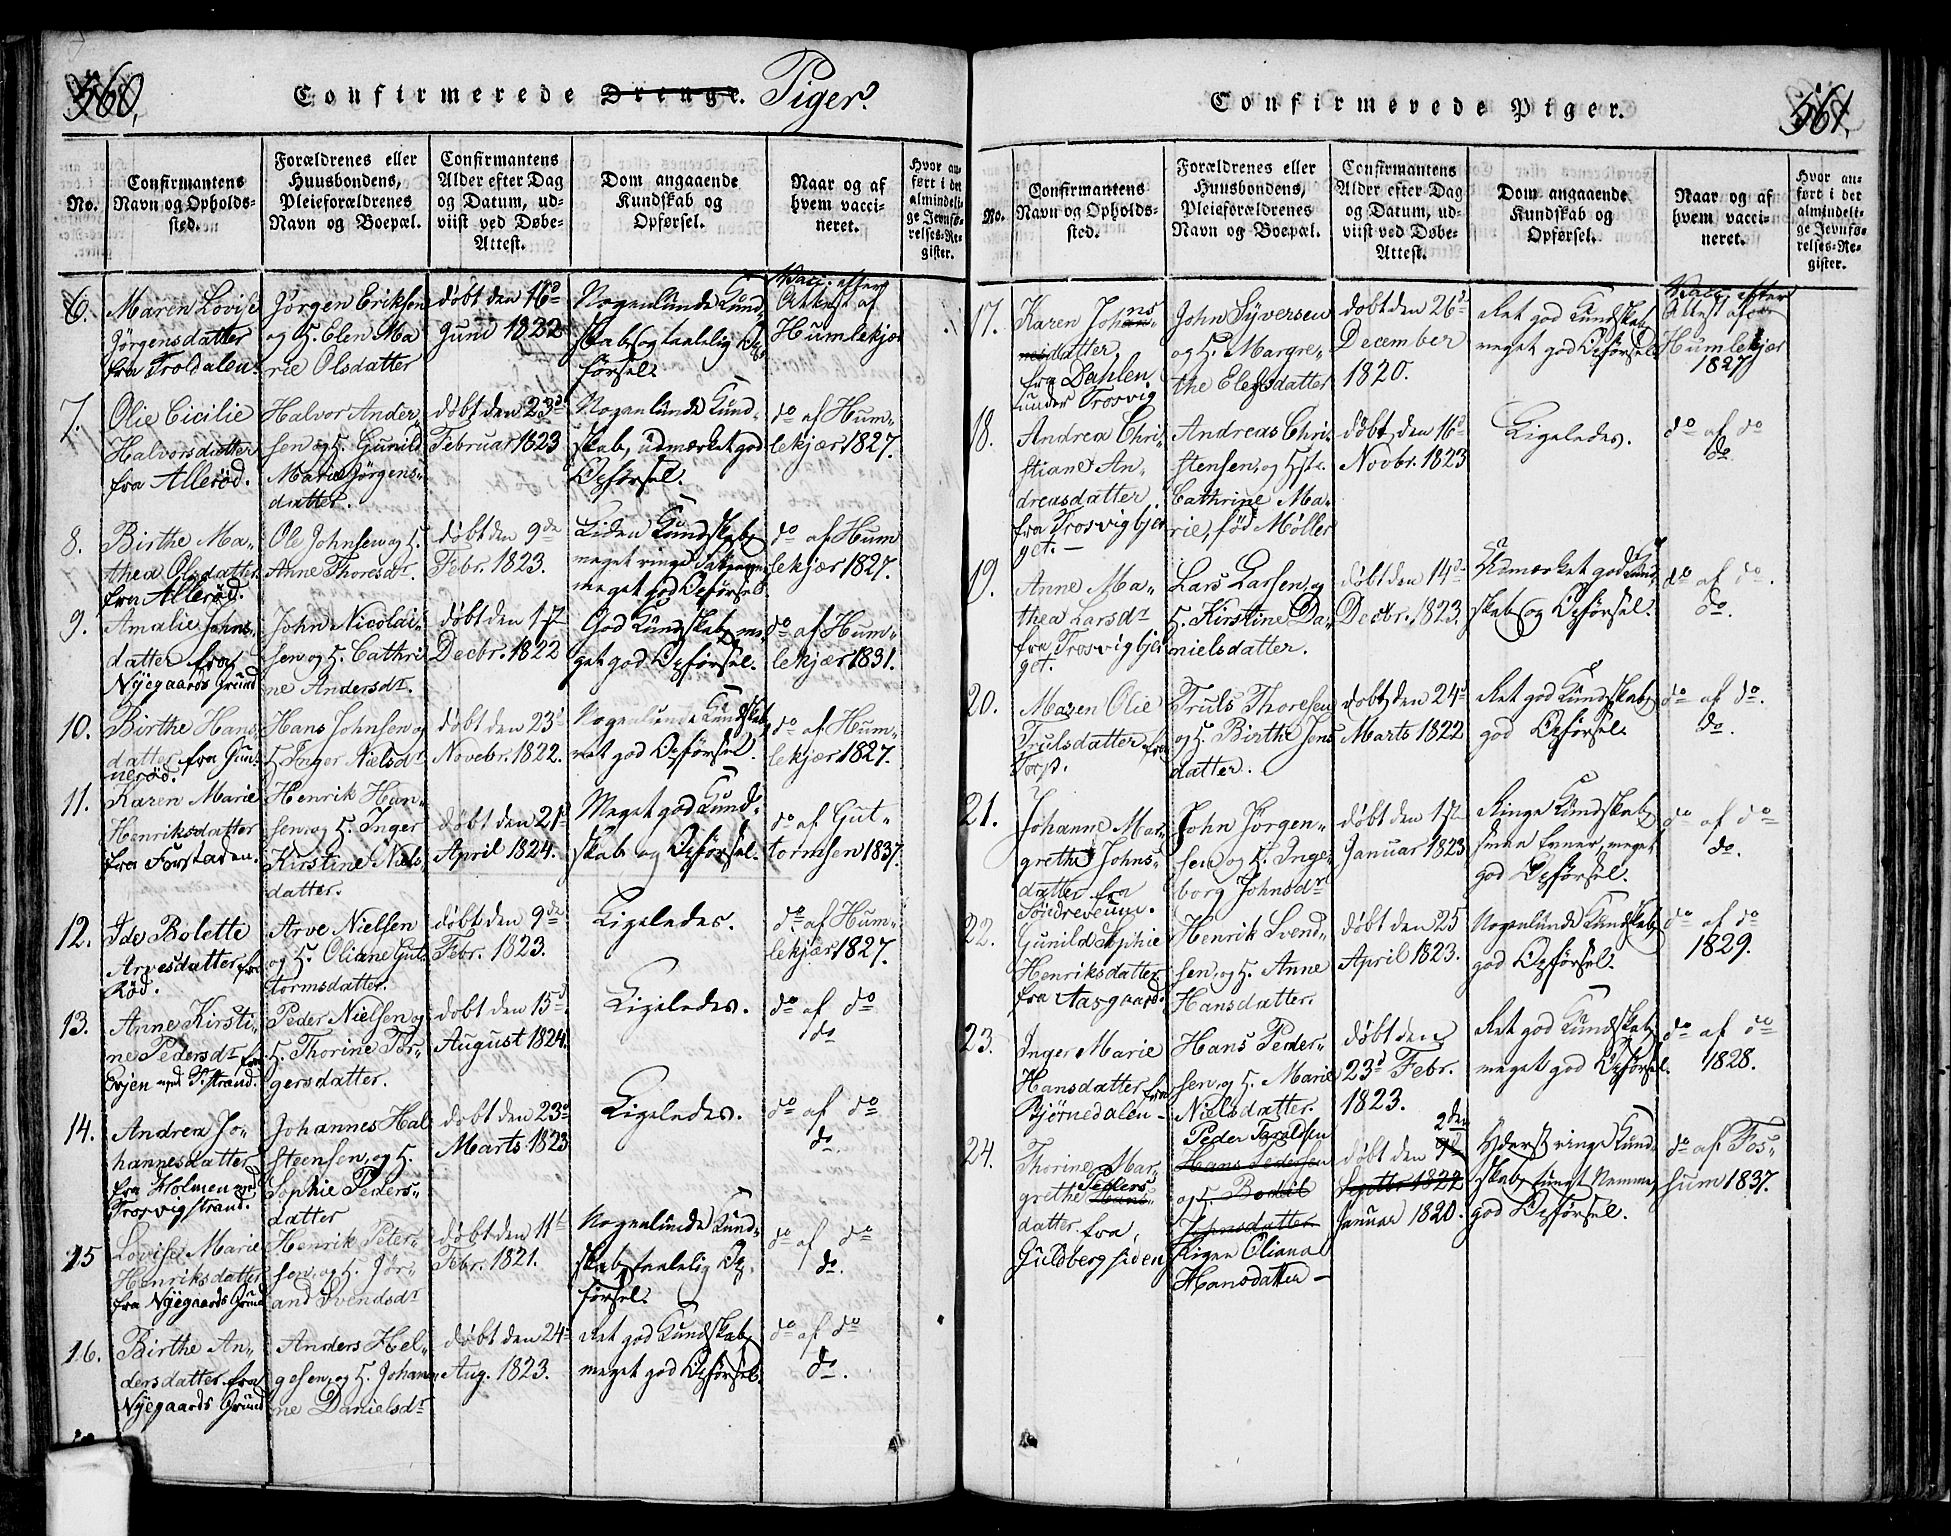 560.
Confirmerede Drenge. Piger.
No.
Confirmantens
Navn og Opholds-
sted.
Forældrenes eller
Huusbondens,
Pleieforældrenes
Navn og Boepæl.
Confirmantens
Alder efter Dag
og Datum, ud-
viist ved Døbe-
Attest.
Dom angaaende
Kundskab og
Opførsel.
Naar og af
hvem vacci-
neret.
Hvor an-
ført i det
almindeli-
ge Jevnfø-
relses-Re-
gister.
6.
Maren Lovise
Jörgensdatter
fra Trodalen.
Jörgen Eriksen
og H. Elen Ma
rie Olsdatter
döbt den 16d
Juni 1822
Nogenlunde Kund-
skab og taalelig Op-
førsel.
Vacc. efter
Attest af
Humlekjær
7.
Olie Cicilie
Halvorsdatter
fra Alleröd.
Halvor Ander
sen og H. Gunild
Marie Jörgens-
datter.
döbt den 23d
Februar 1823
Nogenlunde Kund-
skab, udmærket god
Opførsel.
do af Hum-
lekjær 1827.
8.
Birthe Ma-
thea Olsdatter
fra Alleröd.
Ole Johnsen og H.
Anne Thoresdr.
döbt den 9de
Febr. 1823.
Liden Kundskab
meget ringe
meget god Opførsel
do af Hum
lekjær 1827.
9.
Amalie Johns-
datter fra
Nyegaards Grund
John Nicolai-
sen og H. Cathri
ne Andersdr.
döbt den 1ste
Decbr. 1822
God Kundskab, me-
get god Opførsel.
do af Hum-
lekjær 1831.
10.
Birthe Hans
datter fra Gun-
neröd.
Hans Johnsen og
H. Inger Nielsdr
döbt den 23d
Novebr. 1822.
Nogenlunde Kundskab,
ret god Opførsel.
do af Hum-
lekjær 1827.
11.
Karen Marie
Henriksdatter
fra Forstaden.
Henrik Han-
sen og H. Inger
Kirstine Niels
datter.
döbt den 21d
April 1824.
Meget god Kund-
skab og Opførsel.
do af Gut-
tormsen 1837.
12.
Ide Bolette
Arvesdatter fra
Röd.
Arve Nielsen
og H. Oliane Gut
tormsdatter.
döbt den 9de
Febr. 1823.
Ligeledes.
do af Hum-
lekjær 1827.
13.
Anne Kirsti-
ne Pedersdr fra
Evjen ved T. strand.
Peder Nielsen og
H. Thorine Tor-
gersdatter.
döbt den 15d
August 1824.
Ligeledes.
do af do
do
14.
Andrea Jo-
hannesdatter
fra Holmen ved
Trosvigstrand.
Johannes Hal
steensen, og H.
Sophie Peders-
datter
döbt den 23d
Marts 1823
Ligeledes.
do af do
do.
15
Lovise Marie
Henriksdatter
fra Nyegaards Grund
Henrik Peter-
sen og H. Jör-
and Svendsdr
döbt den 11te
Febr. 1821.
Nogenlunde Kund-
skab, taalelig Op-
førsel.
do af do
do.
16.
Birthe An-
dersdatter fra
Nyegaards Grund
Anders Hel-
gesen, og H. Johan-
ne Danielsdr
döbt den 24d
Aug. 1823.
Ret god Kundskab
meget god Opførsel.
do af do
do.
Confirmerede Piger.
561.
No.
Confirmantens
Navn og Opholds-
sted.
Forældrenes eller
Huusbondens,
Pleieforældrenes
Navn og Boepæl.
Confirmantens
Alder efter Dag
og Datum, ud-
viist ved Døbe-
Attest.
Dom angaaende
Kundskab og
Opførsel.
Naar og af
hvem vacci-
neret.
Hvor an-
ført i det
almindeli-
ge Jevnfø-
relses-Re-
gister.
17.
Karen Johns
datter,
fra Dahlen
under Trosvig
John Syversen
og H. Margre-
the Elefsdatter
döbt den 26d
December
1820.
Ret god Kundskab
meget god Opførsel
Vacc. efter
Attest af
Humlekjær
1827
18.
Andrea Chri-
stiane An-
dreasdatter
fra Trosvigbjer
get. -
Andreas Chri-
stensen, og Hst.
Cathrine Ma-
rie, fød Møller
döbt den 16d
Novbr. 1823
Ligeledes.
do af do
do
19.
Anne Ma-
thea Larsdr
fra Trosvigbjer
get.
Lars Larsen, og
H. Kirstine Da-
nielsdatter.
döbt den 14d
Decbr. 1823.
Udmærket god Kund-
skab og Opførsel.
do af do.
do.
20.
Maren Olie
Trulsdatter fra
Torp.
Truls Thoresen
og H. Birthe Jens
datter.
dobt den 24d
Marts 1822
Ret god Kundskab
god Opførsel.
do af do.
do.
21.
Johanne Mar-
grethe Johns-
datter fra
Söndreveum.
John Jörgen-
sen og H. Inge-
borg Johnsdr
döbt den 1ste
Januar 1823
Ringe Kundskab
smaa Evner, meget
god Opførsel.
do af do
do.
22.
Gunild Sophie
Henriksdatter
fra Aasgaard.
Henrik Svend-
sen, og H. Anne
Hansdatter.
döbt den 25
April 1823.
Nogenlunde Kundskab
god Opførsel.
do af do
1829.
23.
Inger Marie
Hansdatter fra
Björnedalen -
Hans Peder-
sen, og H. Marie
Nielsdatter.
döbt den
23d Febr.
1823.
Ret god Kundskab,
meget god Opførsel.
do af do
1828.
24.
Thorine Mar-
grethe Hans- Peders
datter fra
Guldbergsiden
Peder Taraldsen
Hans Pedersen
og H. Bodil
Johnsdatter
Pigen Oliana
Hansdatter -
döbt den 9d 2den
Septbr 1822
Januar 1820.
Yderst ringe Kund-
skab, tungt Nemme,
god Opførsel.
do af Fos-
sum 1837.